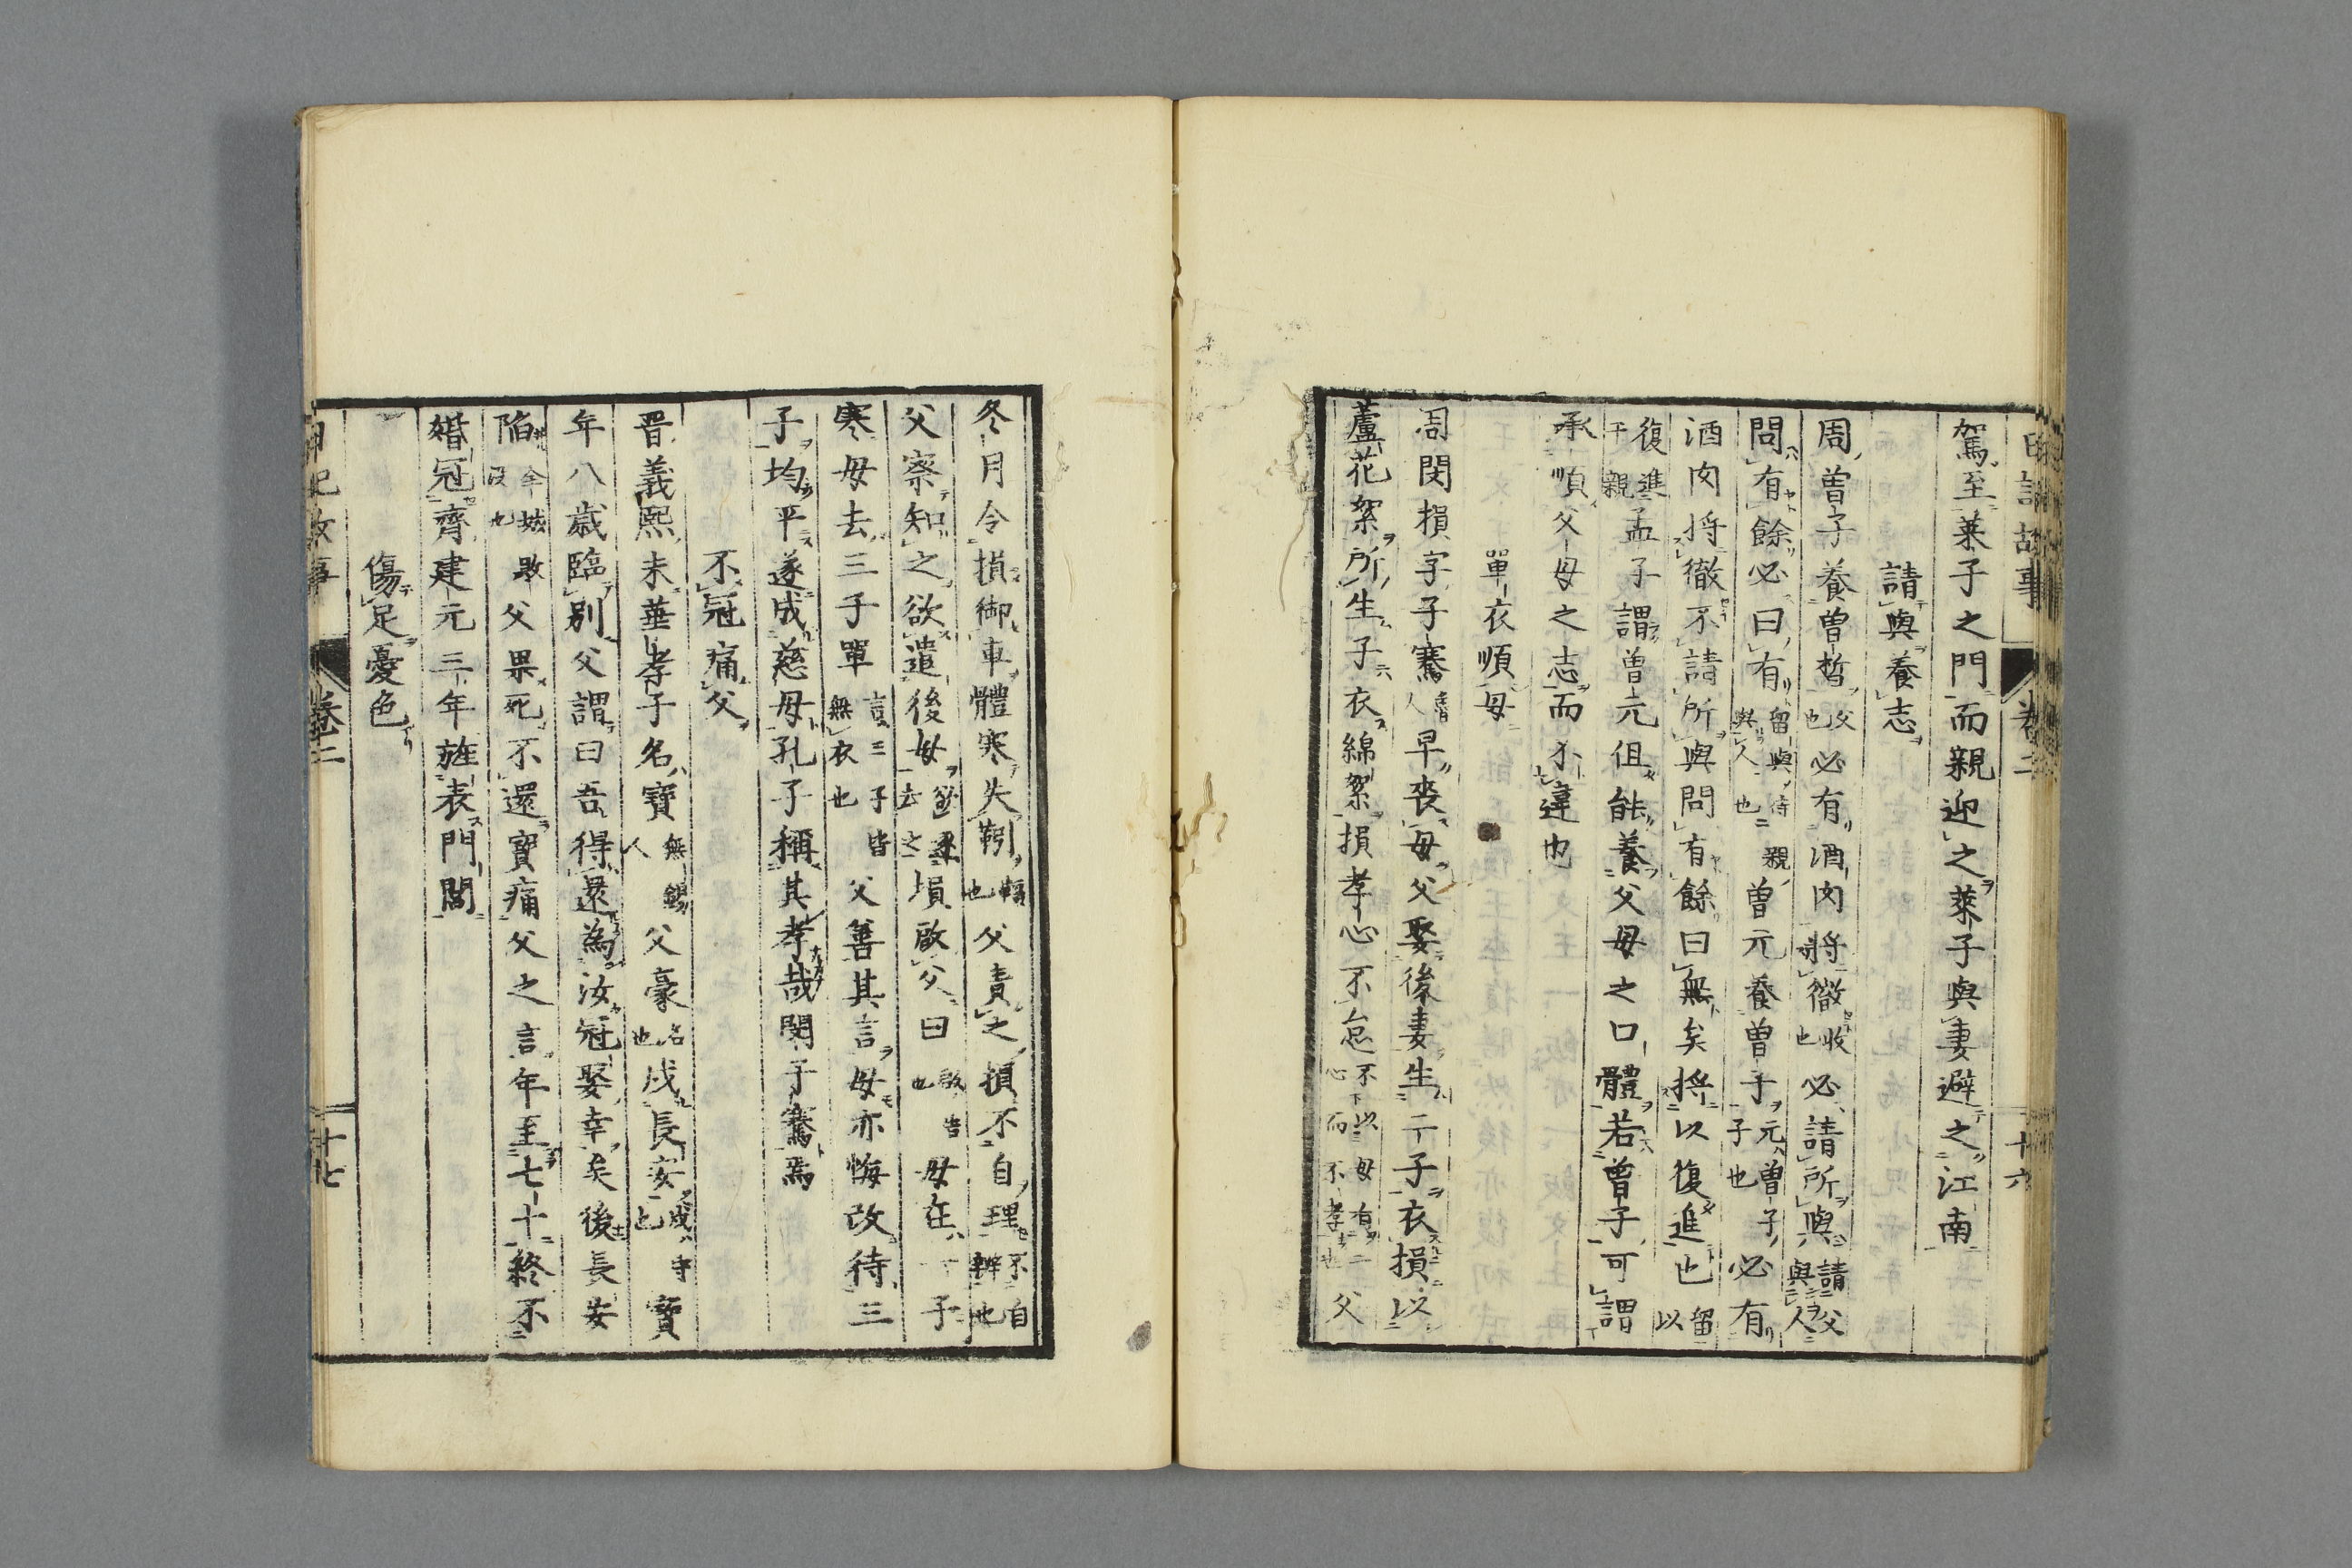 日記故事 卷二 十六
駕至莱子之門而親迎之莱子與妻避之江南
請與養志
周曽子養曽晳父也必有酒肉將徹收也必請所與請父與人
問有餘必曰有留與侍與人也親曽元養曽子元曽子子也必有
酒肉将徹不請所與問有餘曰無矣将以復進也留以
復進于親孟子謂曽元但能養父母之口體若曽子可謂
承順父母之志而不違也
單衣順母
周閔損字子騫早喪母父娶後妻生二子衣損以
蘆花絮所生子衣綿絮損孝心不怠不以母有二心而不孝也父
冬月令損御車體寒失靷也父責之損不自理不自辨也
父察知之欲遣後母去之損啟父曰啟告也母在一子
寒母去三子單言三子皆無衣也父善其言母亦悔改待三
子均平遂成慈母孔子稱其孝哉閔子騫焉
不冠痛父
晋義熙末華孝子名寶無錫人父豪名也戍長安戍守也寶
年八歳臨別父謂曰吾得還為汝冠娶幸矣後長安
陥全城没也敗父果死不還寶痛父之言年至七十終不
婚冠齊建元三年旌表門閭
傷足憂色
日記故事 卷二 十七